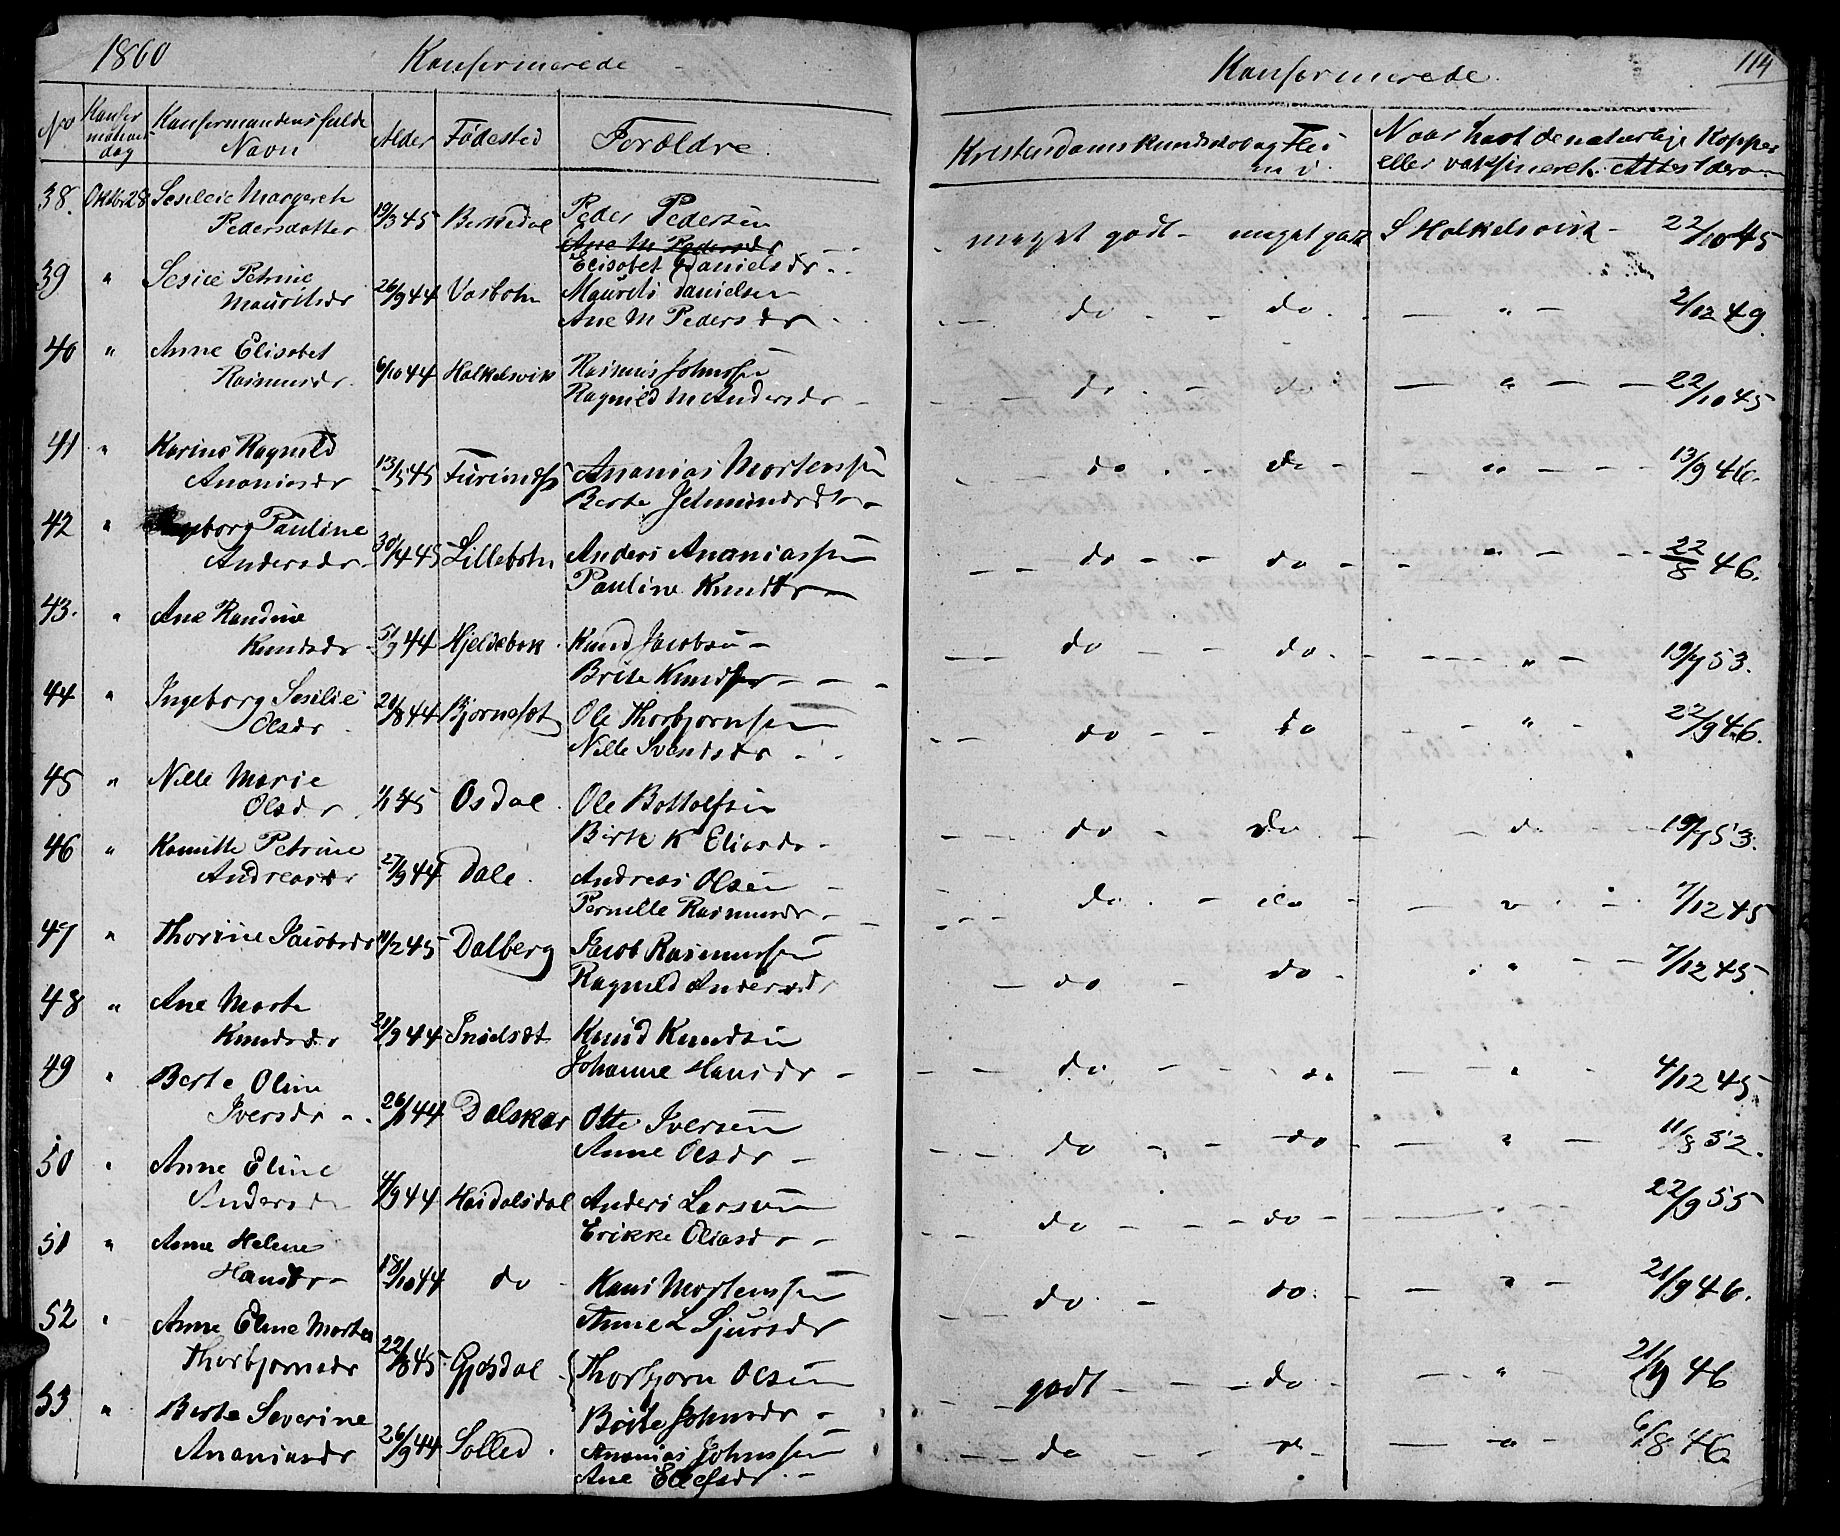 1860 Konfermerede
No Konfermations dag Konfermandens fulde Navn Alder Fødested Forældre
38. Oktbr 28 Sesilie Margrete Pedersdatter 19/3 45 Berkedal Peder Pedersen
Ane M Pedersdr
Elisabet Danielsdr
39 " Sesie Petrine Mauritsdr 26/9 44 Vasbotn Maurits Danielsen
Ane M Pedersdr
40 " Anne Elisabet Rasmusdr 6/10 44 Holkelsvik Rasmus Johnssen
Ragnild M Andersdr
41 " Karine Ragnild Ananiasdr 13/5 45 Ananias Mortenssen
Berte
42 " Ingeborg Pauline Andersdr 30/4 45 Lillebotn Anders Ananiassen
Pauline Knudtr
43. " Ane Randine Knudsdr 5/9 44 Hjeldebak Knud Jacobsen
Brite Knudsdr
44 " Ingeborg Sesilie Olsdr 20/8 44 Bjørneset Ole Thorbjørnsen
Nille Svendsdr
45 " Nille Marie Olsdr 1/1 45 Osdal Ole Bottolfsen
Birte K Eliasdr
46 " Kamitte Petrine Andreasdr 27/9 44 Dale Andreas Olsen
Pernille Rasmusdr
47 " Thorine Jacobsdr 11/2 45 Dalberg Jacob Rasmussen
Ragnild Andersdr
48 " Ane Marte Knudsdr 21/9 44 Knud Knudsen
Johanne Hansdr
49 " Berte Oline Iversdr 26/11 44 Dalskar Otte Iversen
Anne Olsdr
50 " Anne Eline Andersdr 4/9 44 Hasdalsdal Anders Larsen
Erikke Oliasdr
51 " Anne Helene Hansdr 18/10 44 do Hans Mortenssen
Anne L Sjursdr
52 " Anne Eline Marta Thorbjørnsdr 22/8 45 Gjøsdal Thorbjørn Olsen
Brite Johnsdr
53 " Berte Severine Ananiasdr 26/9 44 Solled Ananias Johnssen
Ane Elefsdr
Konfermerede 114
Kristendomskundskab og Fli Naar havt de naturlige Kopper eller vaksineret. Attest derom
meget godt - meget godt S Holkelsvik - 22/10 45
do - do - " - 2/12 49.
do - do - " - 22/10 45
do - do - " - 13/9 46.
do - do - " - 22/8 46.
do - do - " - 19/7 53.
do - do - " - 22/9 46.
do - do - do 19/7 53.
do - do - " 7/12 45
do - do - " - 7/12 45.
do - do - " - 4/12 45
do - do - " - 11/8 52.
do - do - " 22/9 55
do - do - " - 21/9 46.
godt - do - " 21/9 46
do - do - " - 6/8 46